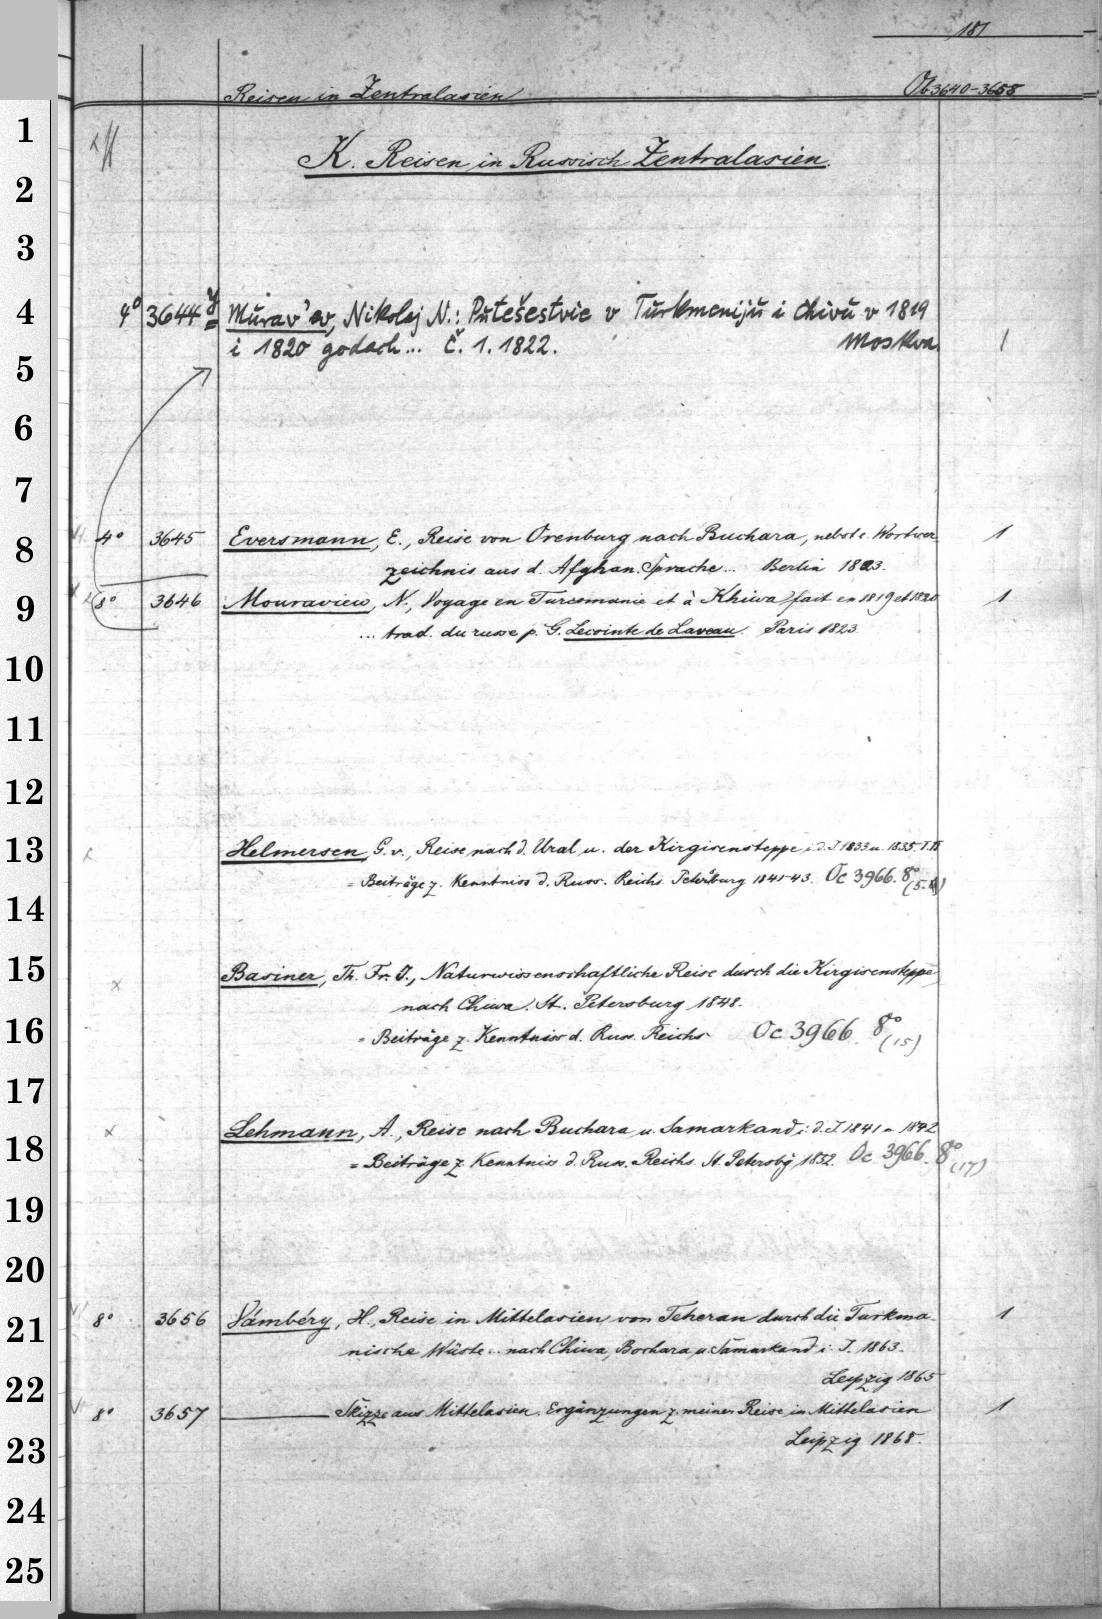 181
Reisen in Zentralasien Ob 3640-3658
1
K. Reisen in Russisch Zentralasien.
2
3
4 4° 3644 y Murav'ev, Nikolaj N.: Putešestvie v Turkmeniju i Chivu v 1819
i 1820 godach... Č. 1. 1822. Moskva. 1
5
6
7
8 4° 3645 Eversmann, E., Reise von Orenburg nach Buchara, nebst e. Wortver- 1
zeichnis aus d. Afghan. Sprache... Berlin 1823.
9 8° 3646 Mouraview, N., Voyage en Turcomanie et à Khiwa, fait en 1819 et 1820 1
... trad. du russe p. G. Lecointe de Laveau. Paris 1823.
10
11
12
13 Helmersen, G. v., Reise nach d. Ural u. der Kirgisensteppe i. d. J 1833 u. 1835. T. II
= Beiträge z. Kenntniss d. Russ. Reichs. Petersburg 1841-43. Oc 3966. 8°
14
15 x Basiner, Th. Fr. J., Naturwissenschaftliche Reise durch die Kirgisensteppe
nach Chiwa. St. Petersburg 1848.
16 = Beiträge z. Kenntniss d. Russ. Reichs. Oc 3966. 8° (15)
17
x Lehmann, A., Reise nach Buchara u. Samarkand i. d. J 1841 u. 1842
18 = Beiträge z. Kenntniss d. Russ. Reichs. St. Petersbg 1852. Oc 3966. 8° (17)
19
20
21 8° 3656 Vámbéry, H., Reise in Mittelasien von Teheran durch die Turkma- 1
nische Wüste... nach Chiwa, Bochara u. Samarkand i. J. 1863.
22 Leipzig 1865
8° 3657 ——— Skizze aus Mittelasien. Ergänzungen z. meiner Reise in Mittelasien 1
23 Leipzig 1868.
24
25